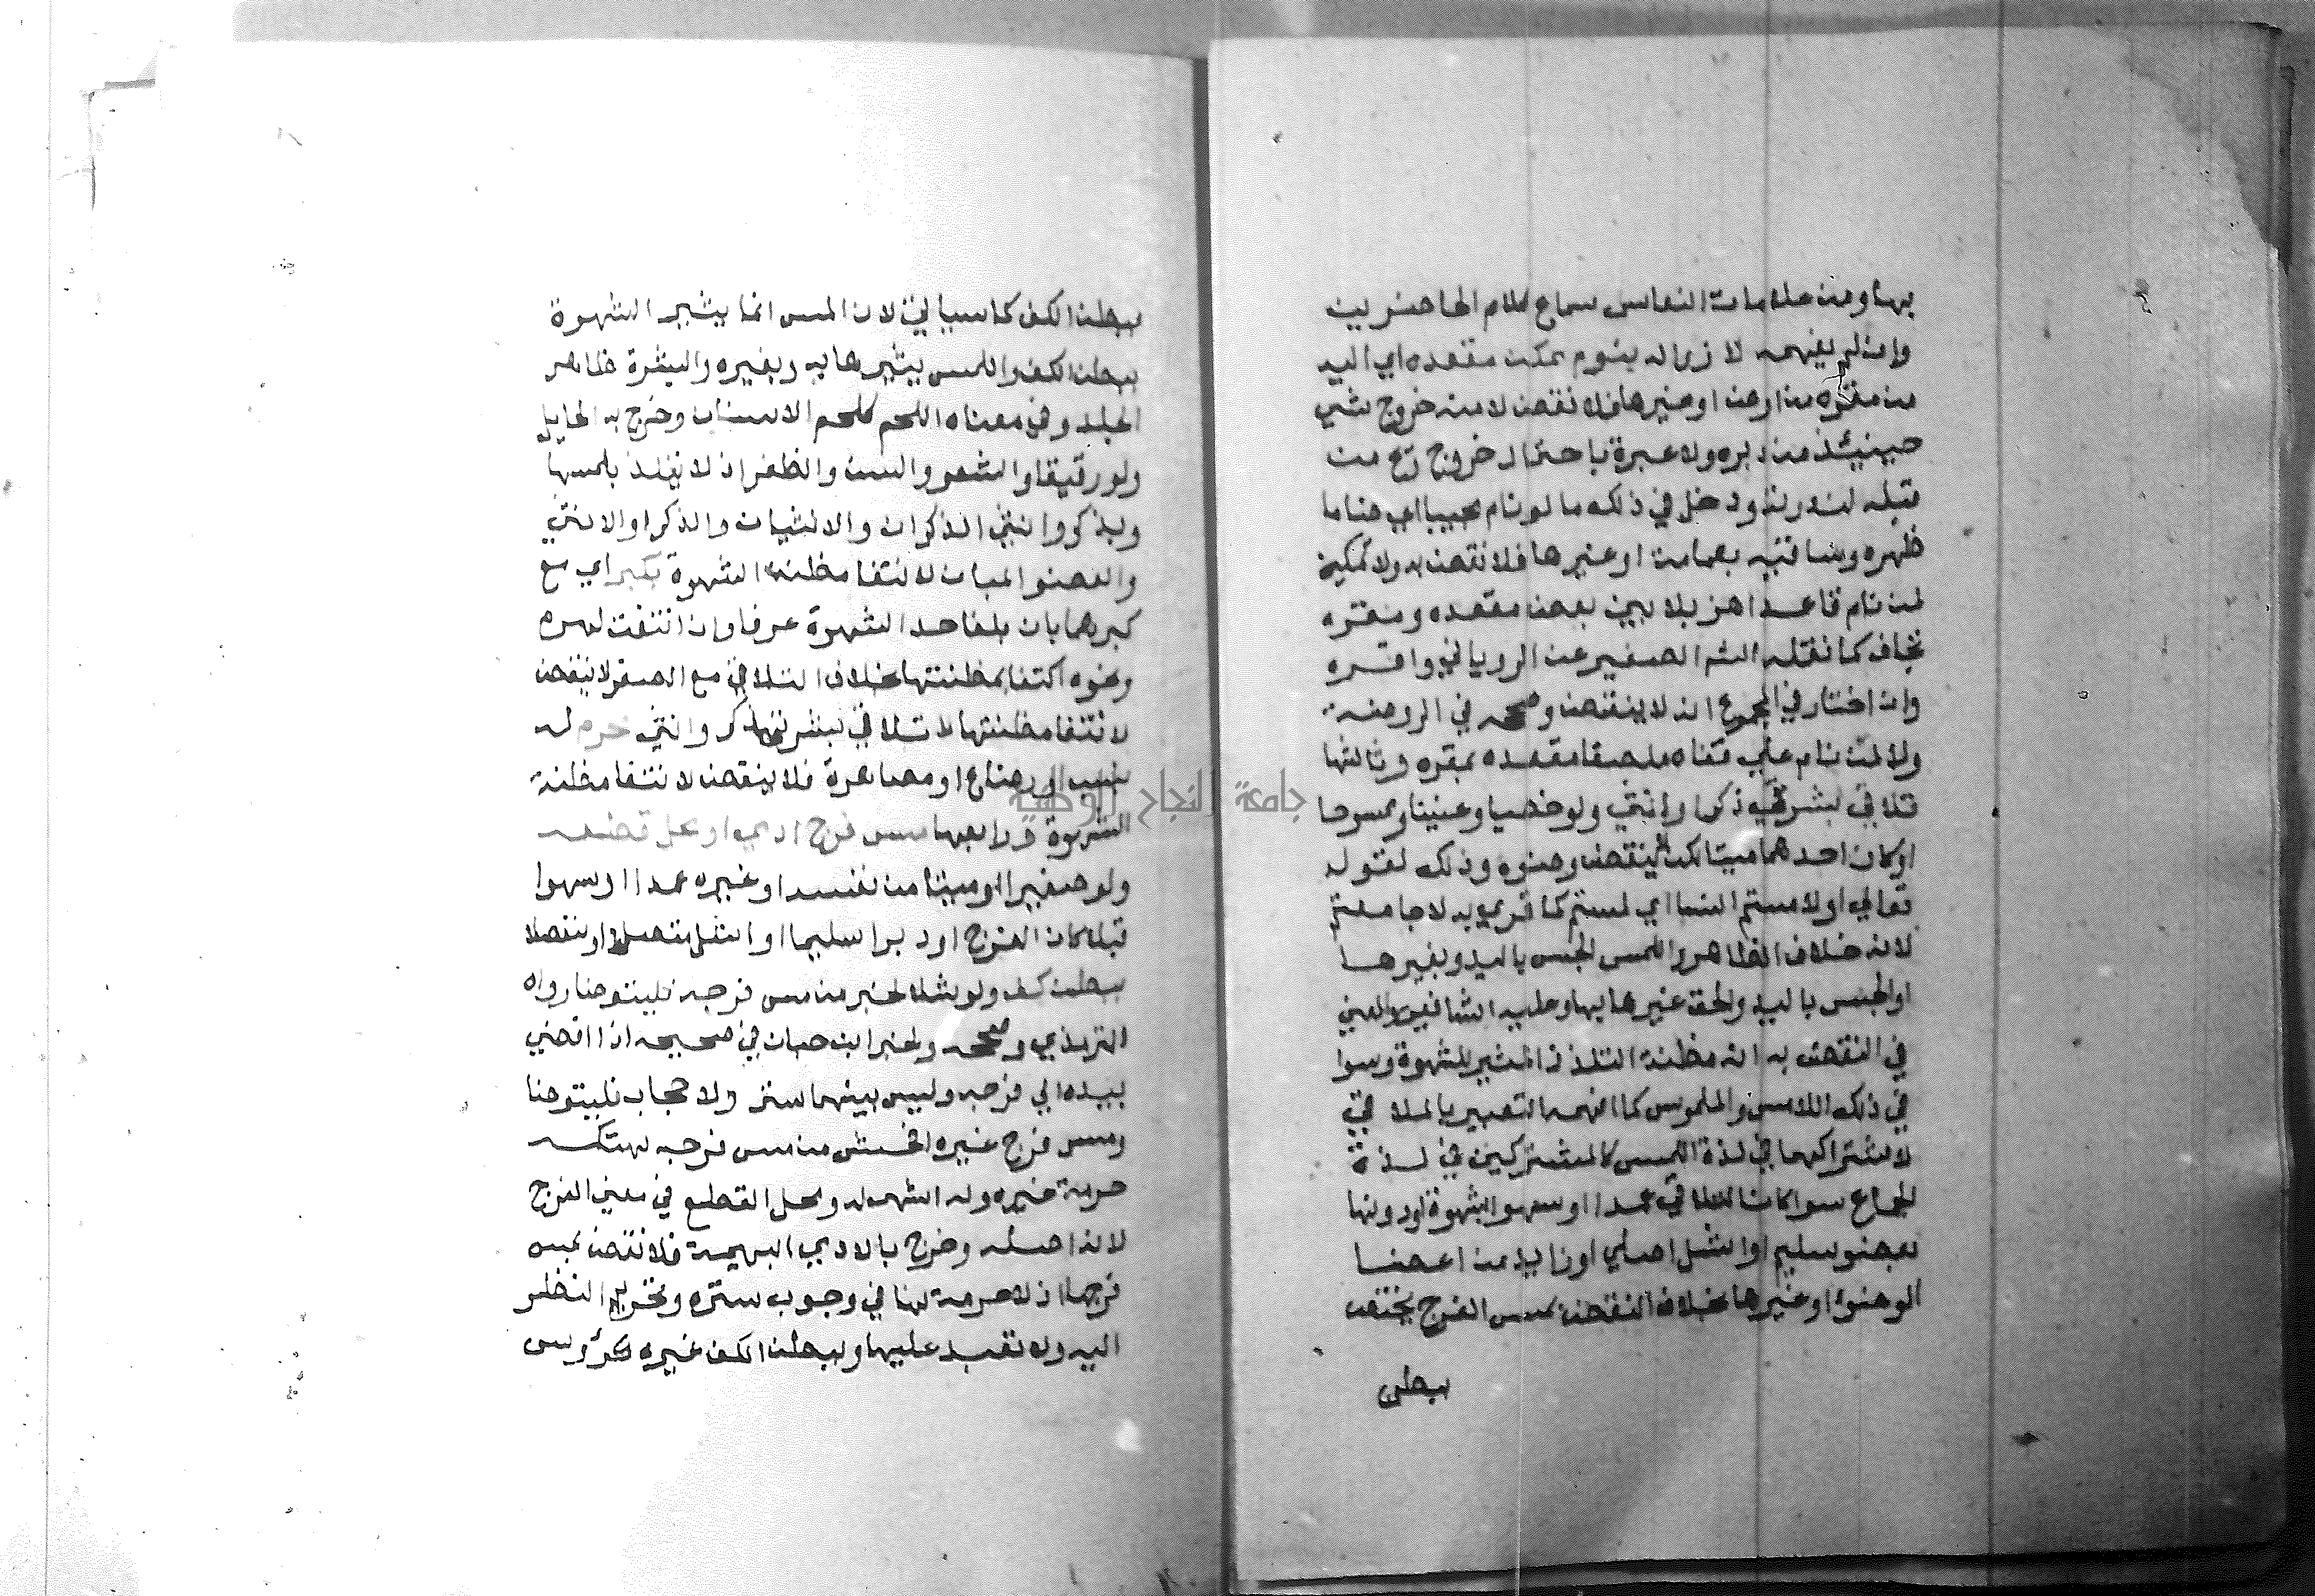 بها ومن علامات النعاس سماع كلام الحاضرين
وان لم يفهمه لا زواله بنوم ممكن مقعده اي الييه
من مقره من ارض او غيرها فلا نقض لامن خروج شي
حينيئذ من دبره ولا عبرة باحتمال خروج ريح من
قبله لندرته ودخل في ذلك ما لو نام محتبيا اي ضاما
ظهره وساقيه بعمامة او غيرها فلا نقض به ولا تمكين
لمن نام قاعدا هزيلا بين بعض مقعده ومقره
تجاف كما نقله الشرح الصغير عن الروياني واقره
وان اختار في المجموع انه لا ينقض وصححه في الروضة
ولا لمن نام على قفاه ملصقا مقعده بمقره وثالثها
تلاقي بشرتي ذكر وانثي ولو خصيا وعنينا وممسوحا
او كان احدهما ميتا لكن لا ينقض وضوه وذلك لقوله
تعالي او لامستم النسا اي لمستم كما قري به لا جامعتم
لانه خلاف الظاهر واللمس الجس باليد وبغيرها
او الجس باليد والحق غيرها بها وعليه الشافعي والمعني
في النقض به انه مظنة التلذذ المثير للشهوة وسوا
في ذلك اللامس والملموس كما افهمه التعبير بالتلاقي
لاشتراكهما في لذة اللمس كالمشتركين في لذة
الجماع سوا كان التلاقي عمدا او سهوا بشهوة او دونها
بعضو سليم او اشل اصلي او زايد من اعضا
الوضوء او غيرها بخلاف النقض بمس الفرج يختص
ببطن
ببطن الكف كما سياتي لان المس انما يثير الشهوة
ببطن الكف واللمس يثيرها به وبغيره والبشرة ظاهر
الجلد وفي معناه اللحم كلحم الاسنان وخرج به الحايل
ولو رقيقا والشعر والسن والظفر اذ لا يلتذ بلمسها
وبذكر وانثي الذكران والانثيان والذكر او الانثي
والعضو المبان لانتفا مظنة الشهوة بكبر اي مع
كبرهما بان بلغا حد الشهوة عرفا وان انتفت لهرم
ونحوه اكتفا بمظنتها بخلاف التلاقي مع الصغر لا ينقض
لانتفا مظنتها لا تلاقي بشرتي ذكر وانثي محرم له
بنسب او رضاع او مصاهرة فلا ينقض لانتفا مظنة
الشهوة ورابعها مس فرج ادمي او محل قطعه
ولو صغيرا او ميتا من نفسه او غيره عمدا او سهوا
قبلا كان الفرج او دبرا سليما او اشل متصلا او منفصلا
ببطن كف ولو شلا لخبر من مس فرجه فليتوضا رواه
الترمذي وصححه ولخبر ابن حبان في صحيحه اذا افضي
بيده الي فرجه وليس بينهما ستر ولا حجاب فليتوضا
ومس فرج غيره افحش من مس فرجه لهتكه
حرمة غيره ولانه اشهى له ومحل القطع في معني الفرج
لانه اصله وخرج بالادمي البهيمة فلا نقض بمس
فرجها اذ لا حرمة لها في وجوب ستره وتحريم النظر
اليه ولا تعبد عليها وببطن الكف غيره كرؤوس
جامعة النجاح الوطنية